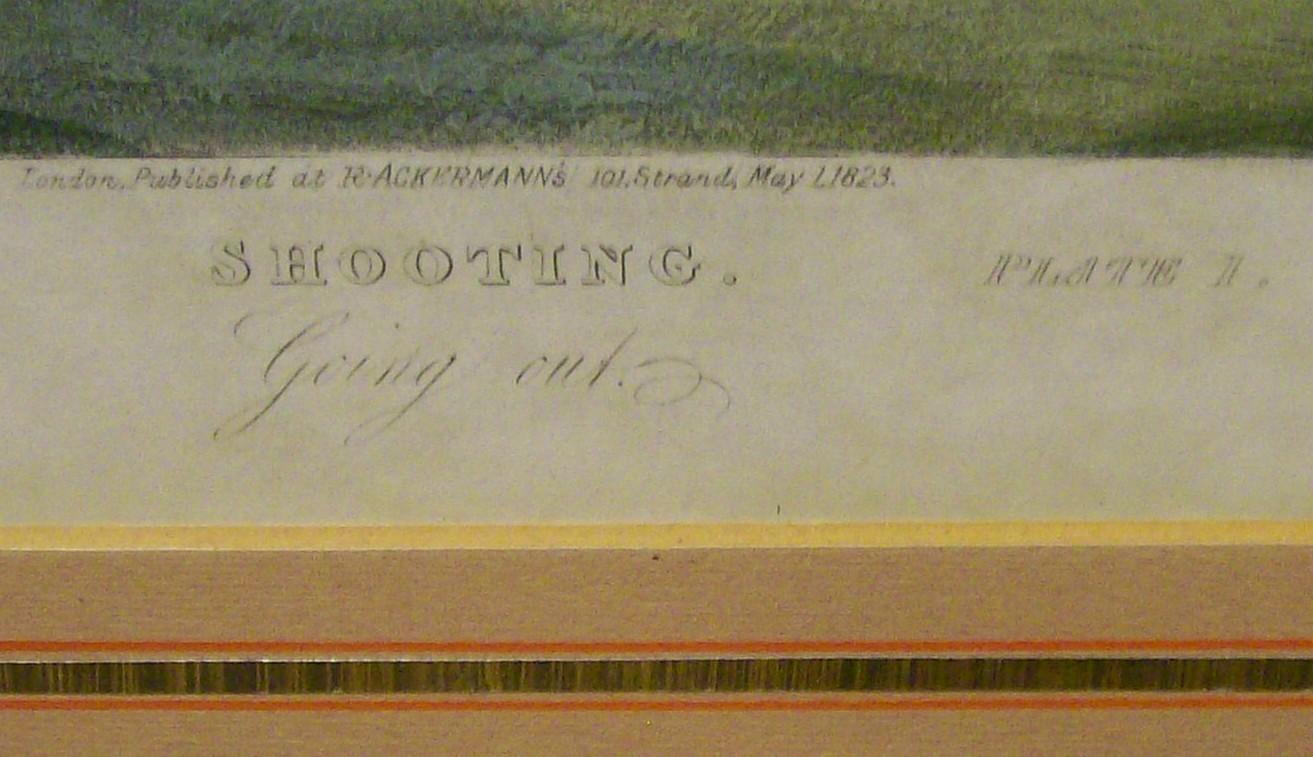 London, Published at R. ACKERMANN'S 101, Strand, May 1, 1823.
SHOOTING.
PLATE 1.
Going out.